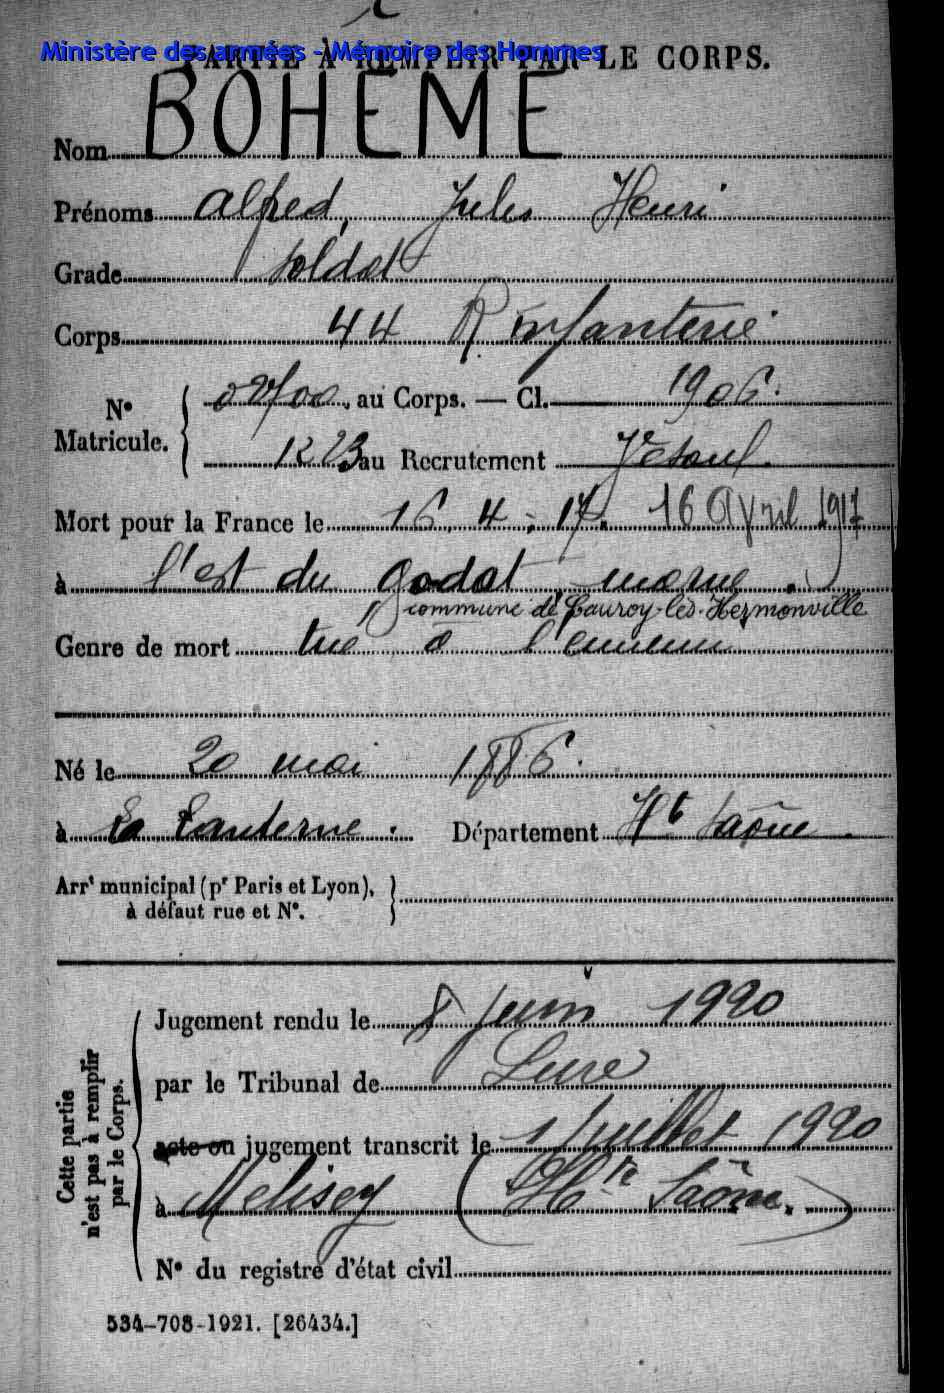 Ministère des armées - Mémoire des Hommes
PARTIE À REMPLIR PAR LE CORPS.
Nom BOHEME
Prénoms Alfred, Jules Henri
Grade soldat
Corps 44 R. infanterie
N° Matricule. { au Corps. — Cl. 1906.
1223 au Recrutement Vesoul.
Mort pour la France le 16. 4. 17. 16 Avril 1917
à l'est du godat, marne.
commune de Cauroy-lès-Hermonville
Genre de mort tué à l'ennemi
Né le 20 mai 1886.
à La Lanterne. Département Hte Saône.
Arrt municipal (pr Paris et Lyon), }
à défaut rue et N°.
Cette partie n'est pas à remplir par le Corps.
Jugement rendu le 8 Juin 1920
par le Tribunal de Lure
acte ou jugement transcrit le 1 Juillet 1920
à Melisey (Hte Saône.)
N° du registre d'état civil
534-708-1921. [26434.]